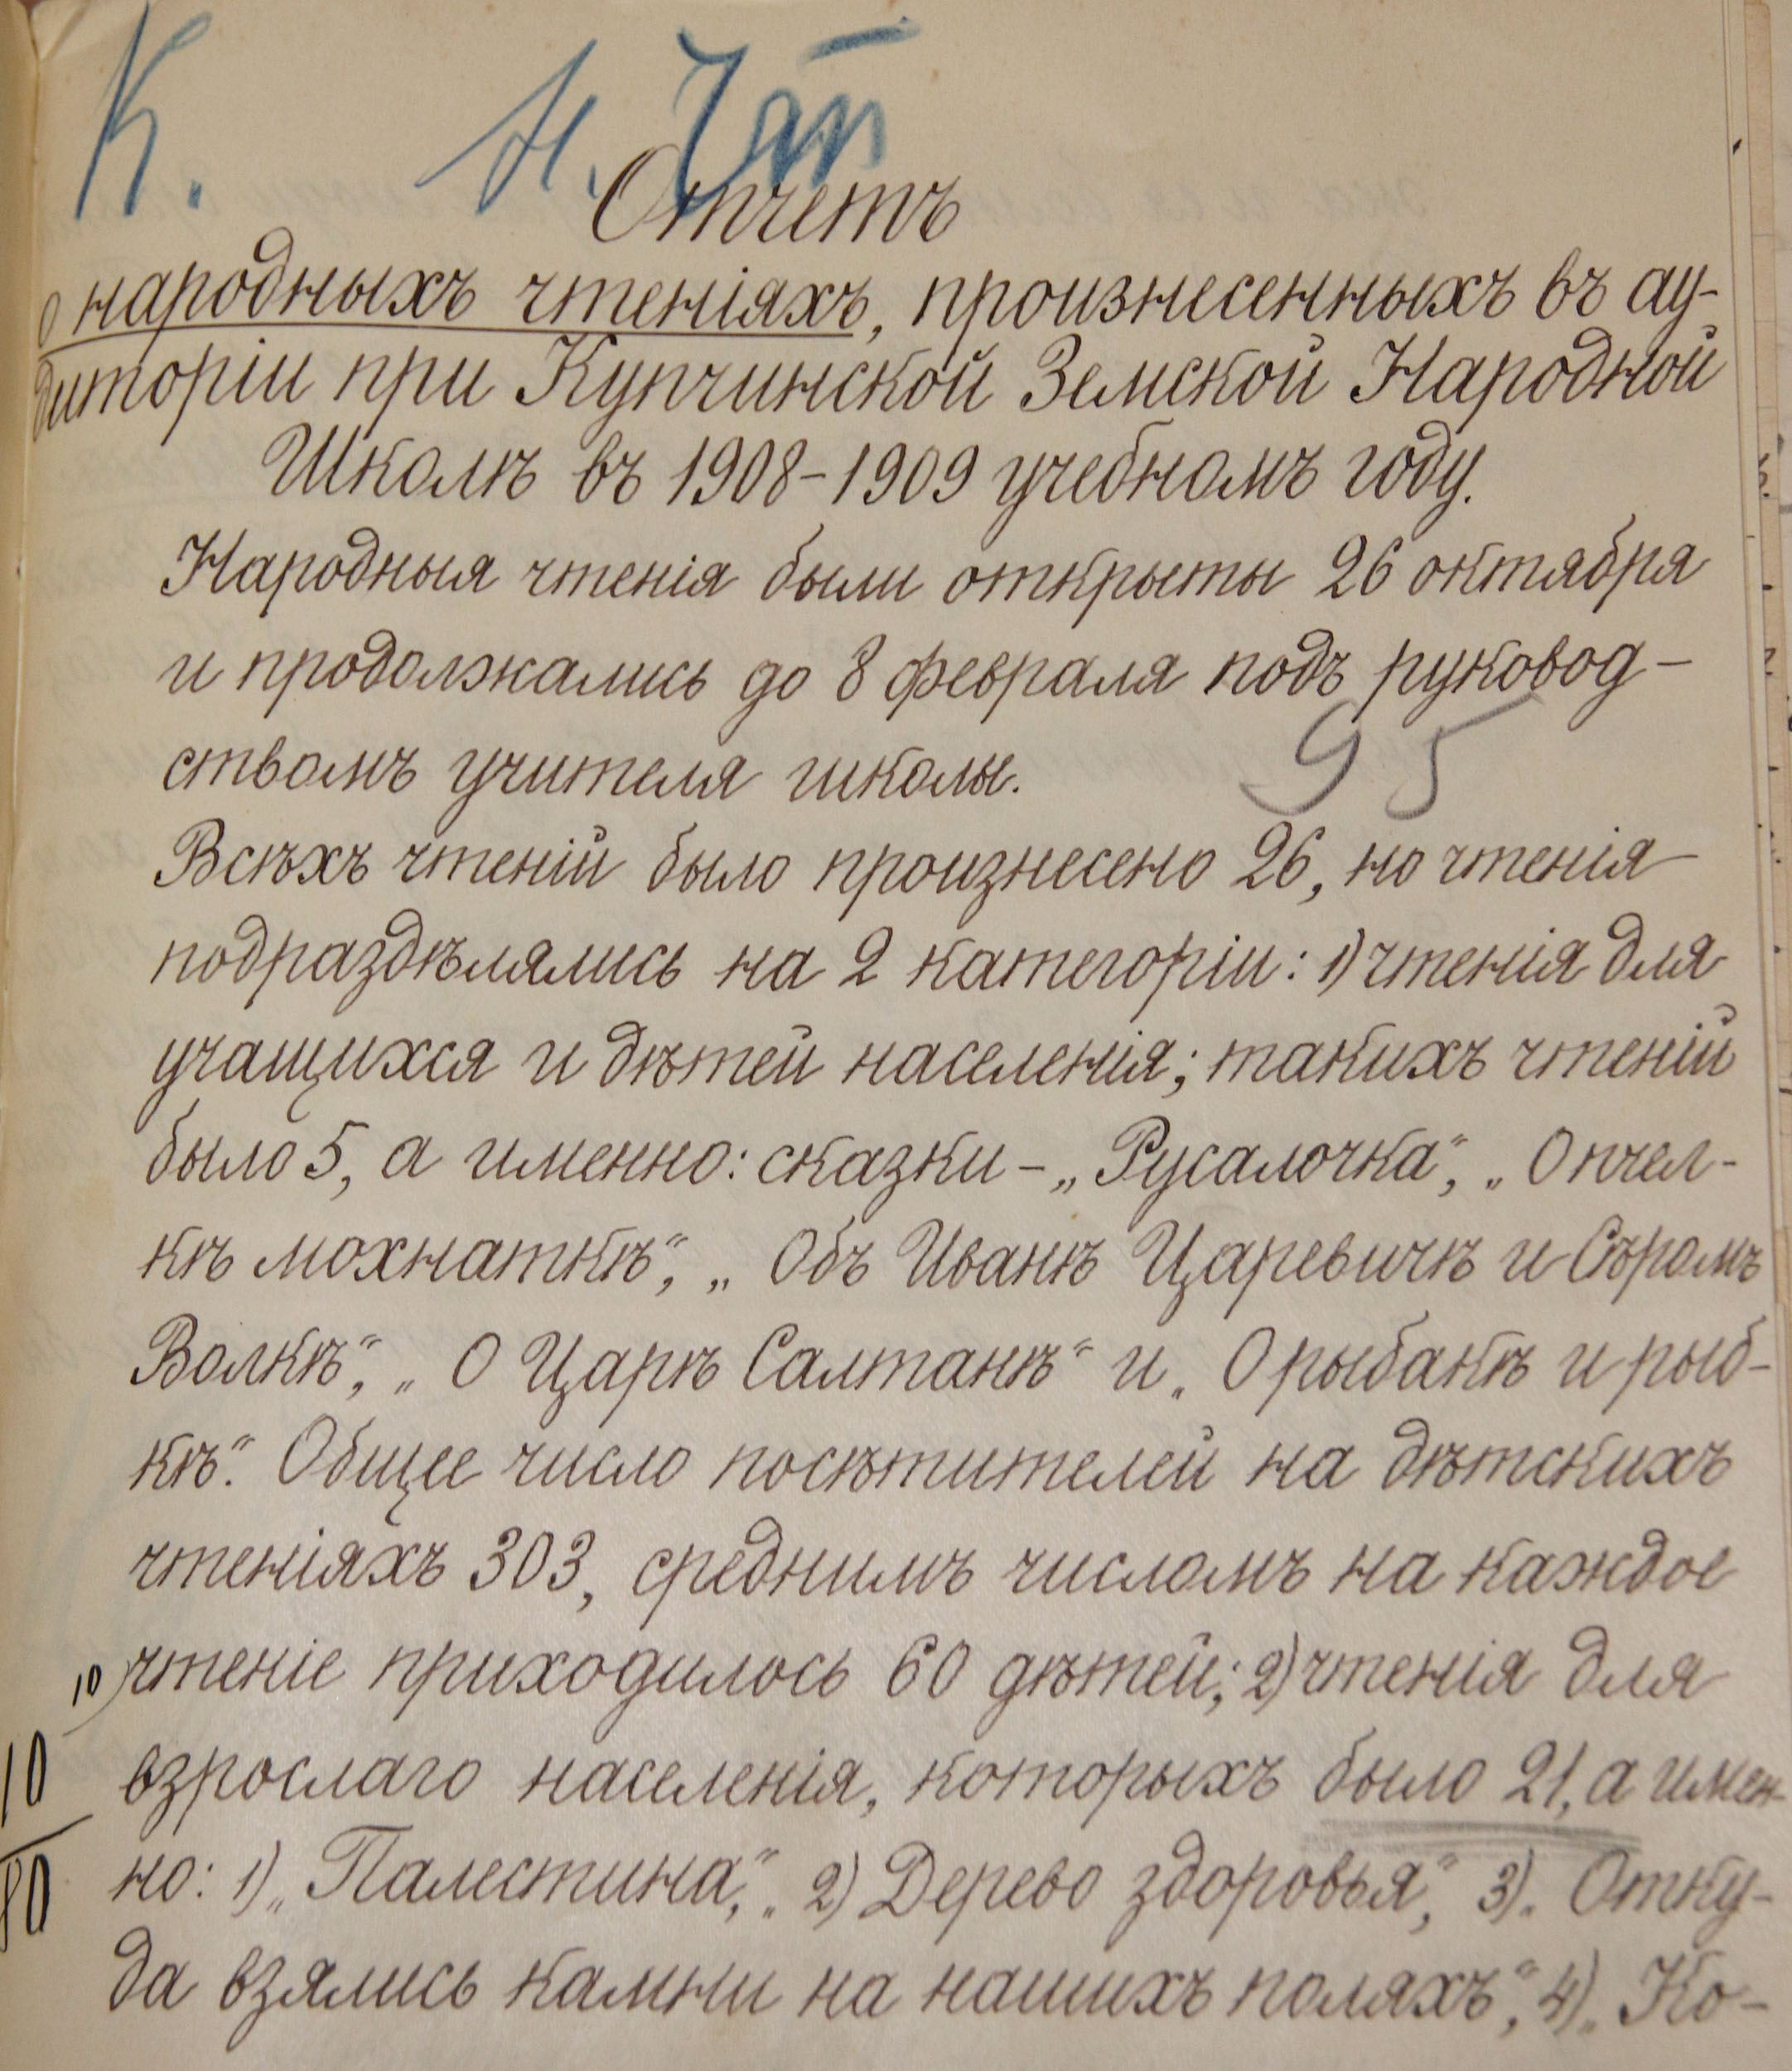 К. Н. Чт
Отчетъ
о народныхъ чтеніяхъ, произнесенныхъ въ ау-
диторіи при Купчинской Земской Народной
Школѣ въ 1908-1909 учебномъ году.
Народныя чтенія были открыты 26 октября
и продолжались до 8 февраля подъ руковод-
ствомъ учителя школы.
95
Всѣхъ чтеній было произнесено 26, но чтенія
подраздѣлялись на 2 категоріи: 1) чтенія для
учащихся и дѣтей населенія; такихъ чтеній
было 5, а именно: сказки - „Русалочка“, „О пчел-
кѣ мохнаткѣ“, „Объ Иванѣ Царевичѣ и Сѣромъ
Волкѣ“, „О Царѣ Салтанѣ“ и „О рыбакѣ и рыб-
кѣ“. Общее число посѣтителей на дѣтскихъ
чтеніяхъ 303, среднимъ числомъ на каждое
10) чтеніе приходилось 60 дѣтей; 2) чтенія для
10 взрослаго населенія, которыхъ было 21, а имен-
80 но: 1) „Палестина“, „2) Дерево здоровья“, 3) „Отку-
да взялись камни на нашихъ поляхъ“, 4) „Ко-